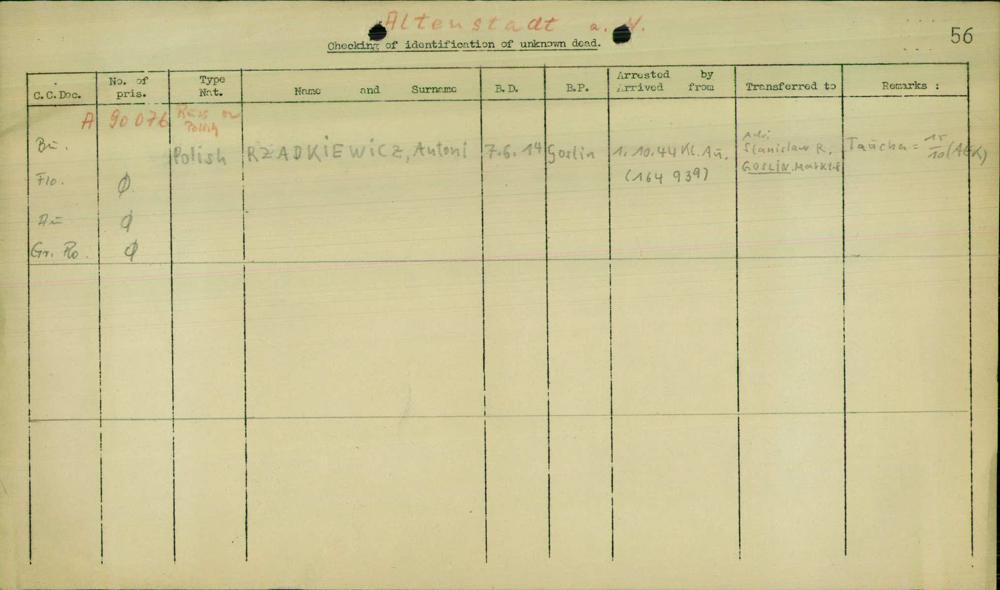 Altenstadt a. N.
56
Checking of identification of unknown dead.
C.C.Doc. No. of pris. Type Nat. Name and Surname B.D. B.P. Arrested by Arrived from Transferred to Remarks :
A 90076 Russ or Polish
Bu. Polish RZADKIEWICZ, Antoni 7.6.14 Goslin 1.10.44 Kl. Au. (164 939) Stanislaw R. GOSLIN, Markt Taucha = 15/10
Flo. Ø
Au Ø
Gr. Ro. Ø